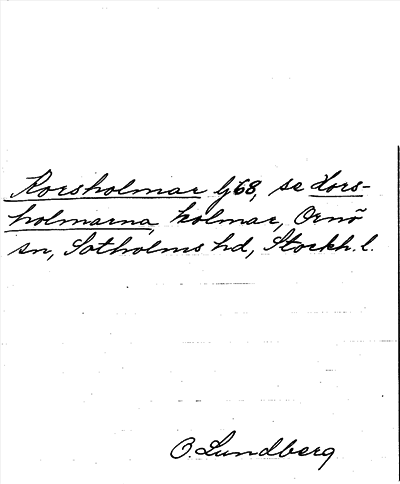 Rorsholmar lj68, se Kors-
holmarna, holmar, Ornö
sn, Sotholms hd, Stockh. l.
O. Lundberg